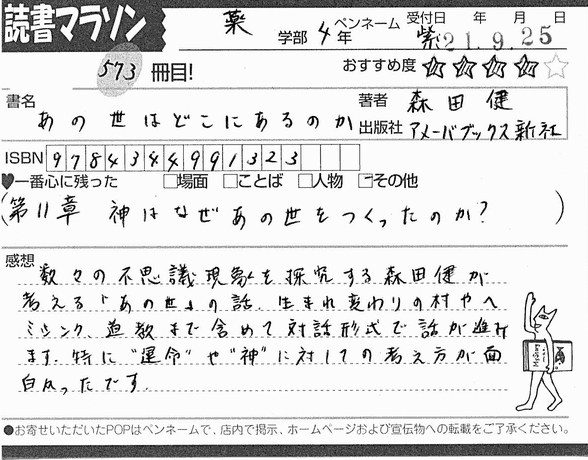 読書マラソン
薬 学部 4年 ペンネーム 紫
受付日 年 月 日
21.9.25
573 冊目!
おすすめ度 ★★★★☆
書名 あの世はどこにあるのか
著者 森田 健
出版社 アメーバブックス新社
ISBN 9784344991323
♥一番心に残った □場面 □ことば □人物 □その他
(第11章 神はなぜあの世をつくったのか? )
感想
数々の不思議現象を探究する森田健が
考える「あの世」の話。生まれ変わりの村やヘ
ミシンク、素数まで含めて対話形式で話が進み
ます。特に"運命"や"神"に対しての考え方が面
白かったです。
●お寄せいただいたPOPはペンネームで、店内で掲示、ホームページおよび宣伝物への転載をご了承ください。